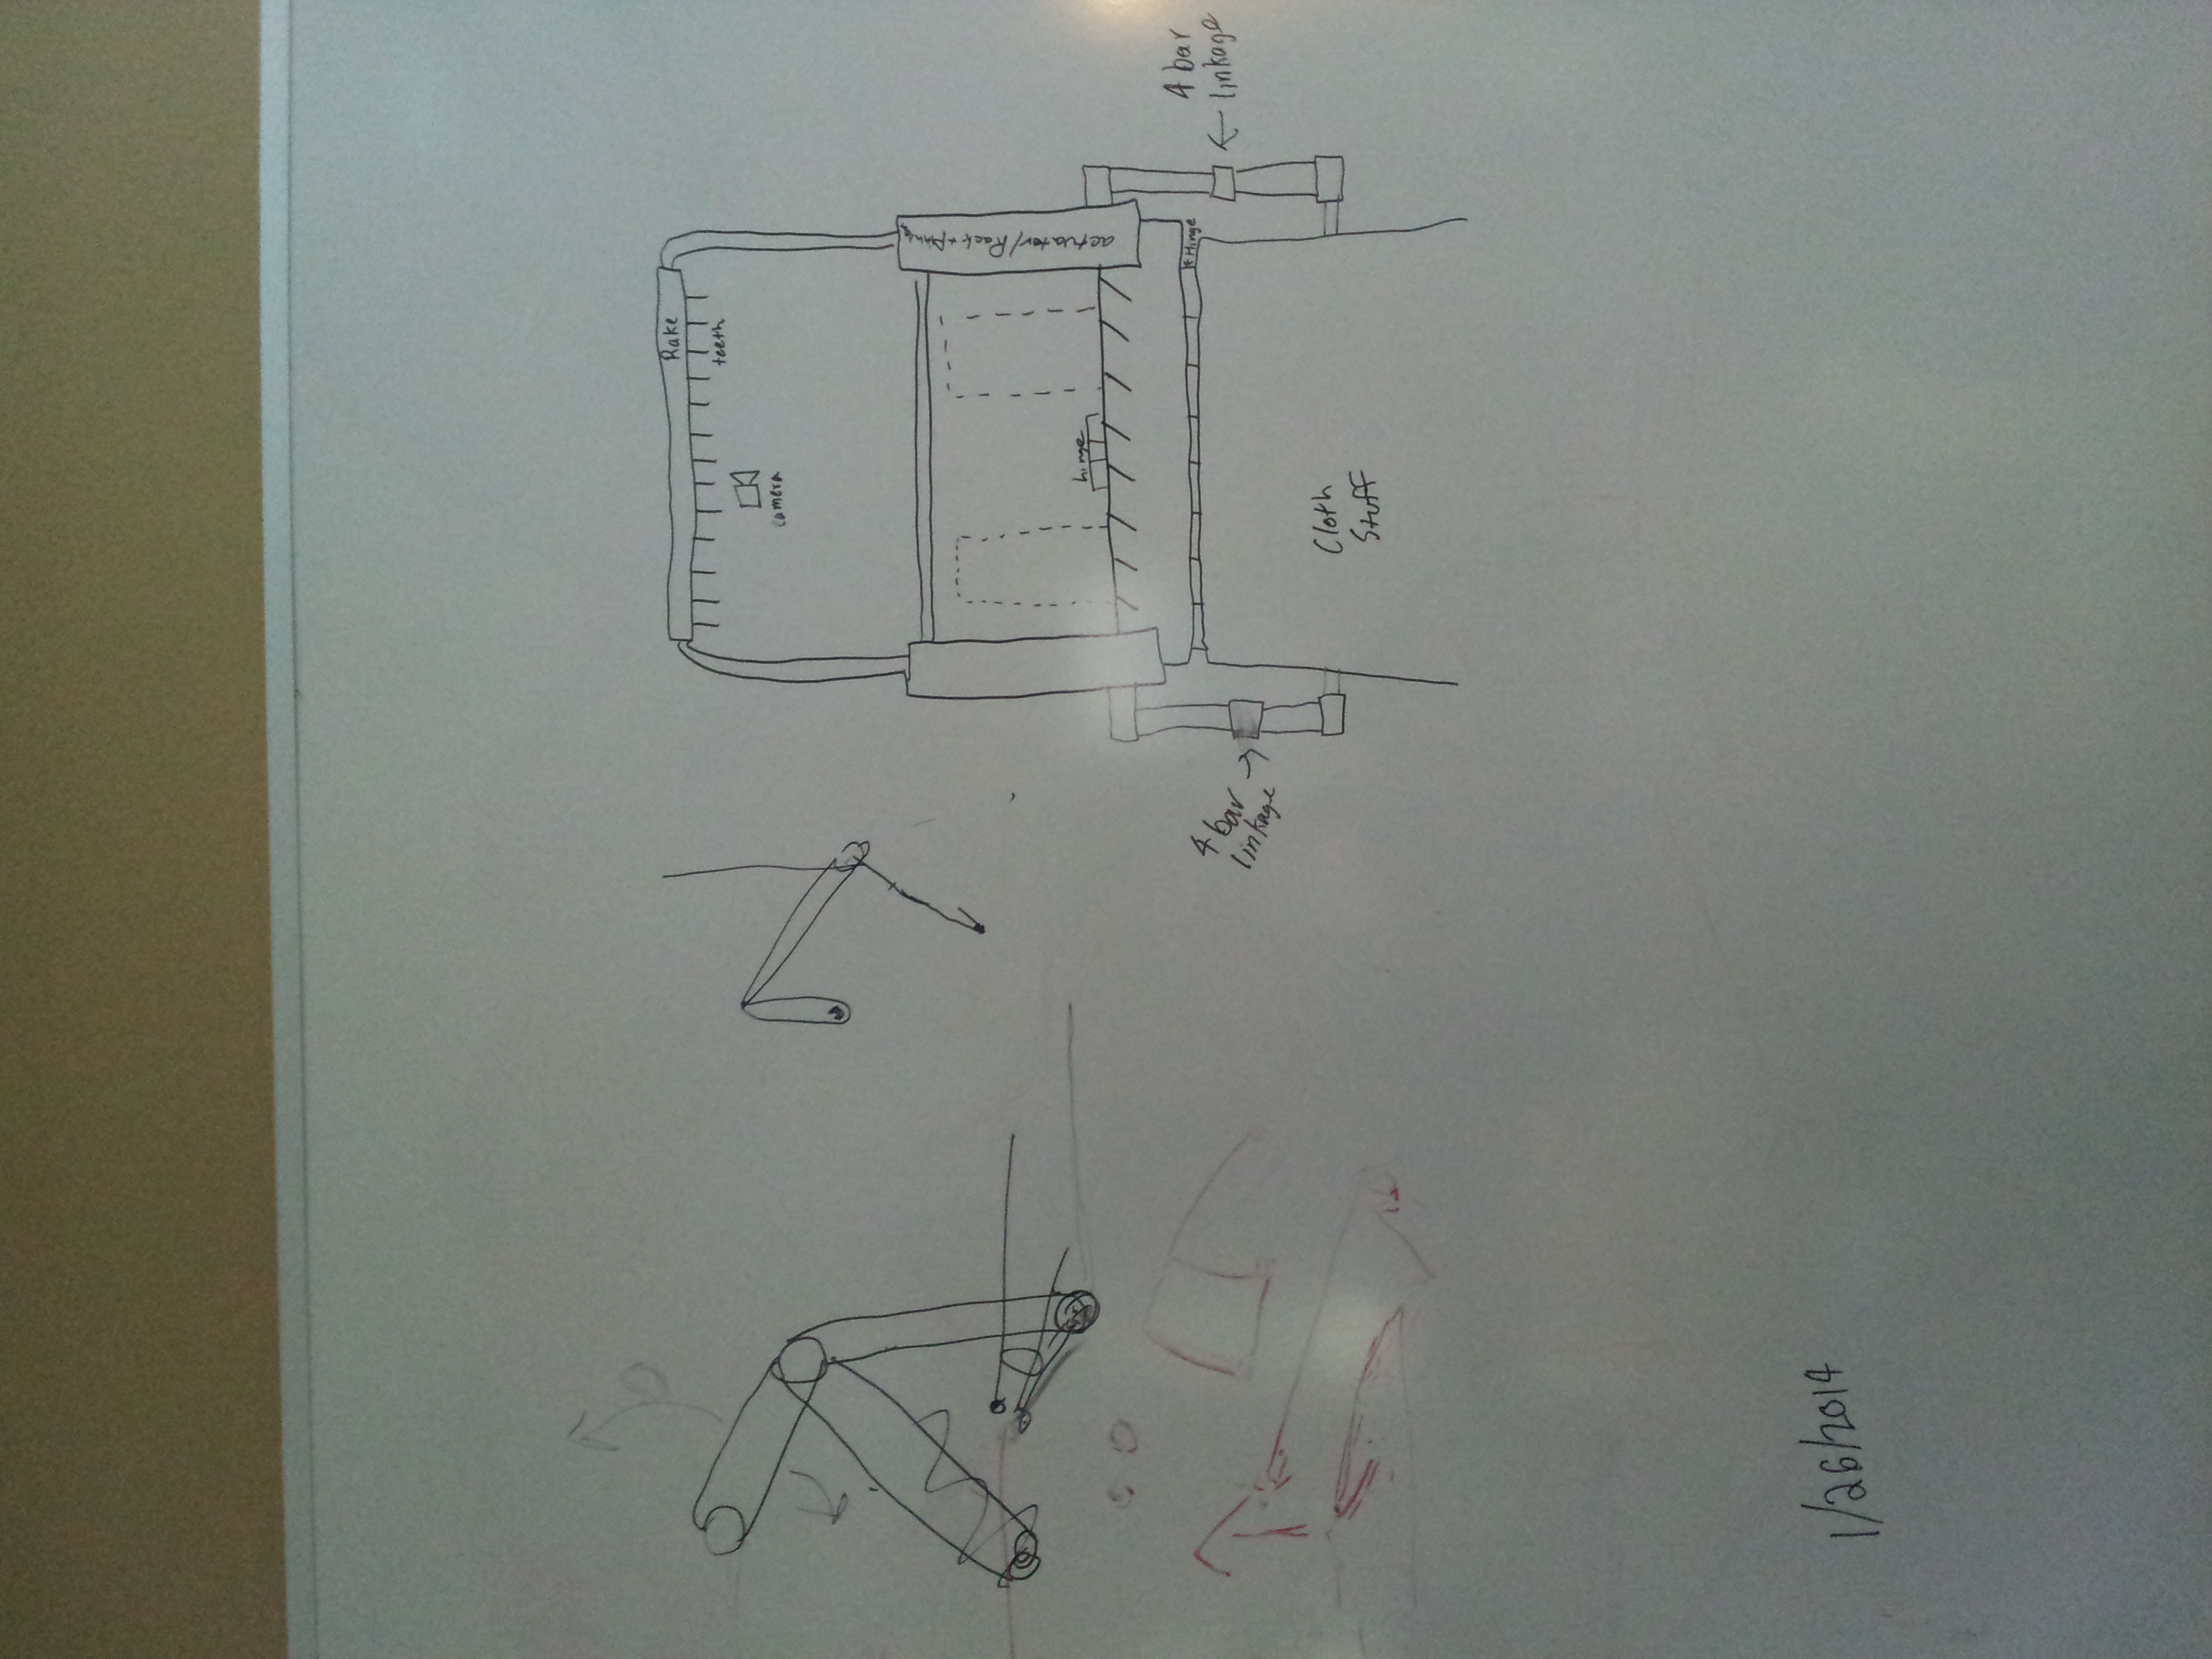 Rake
teeth
camera
actuator/Rack + Pinion
hinge
Hinge
4 bar
linkage
4 bar
linkage
Cloth
Stuff
1/26/2014